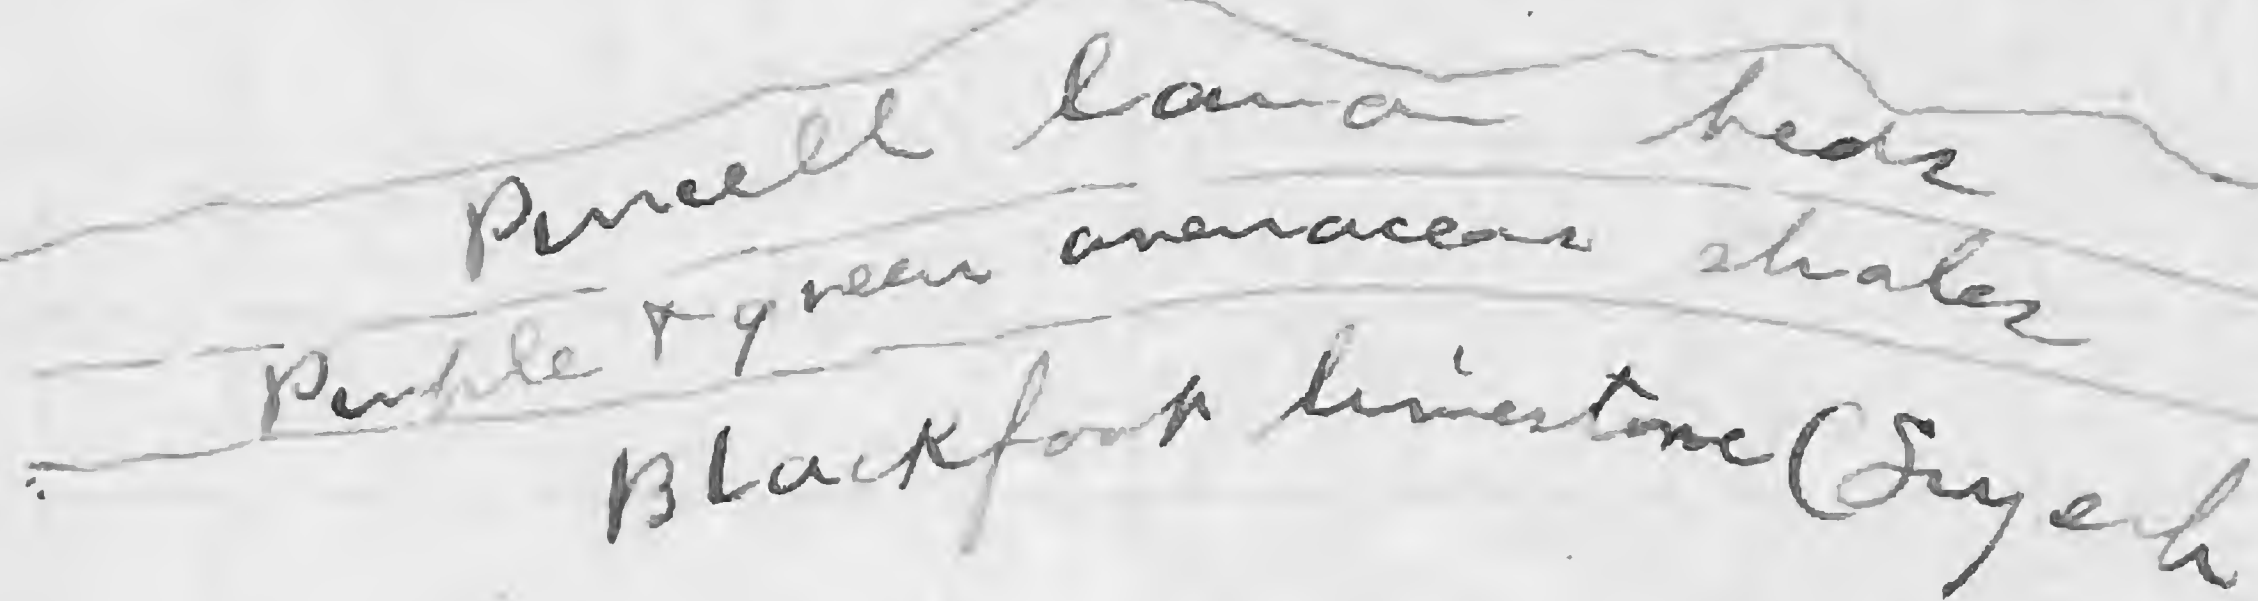 Purcell lava beds
Purple + green arenaceous shales
Blackfoot limestone (Siyeh